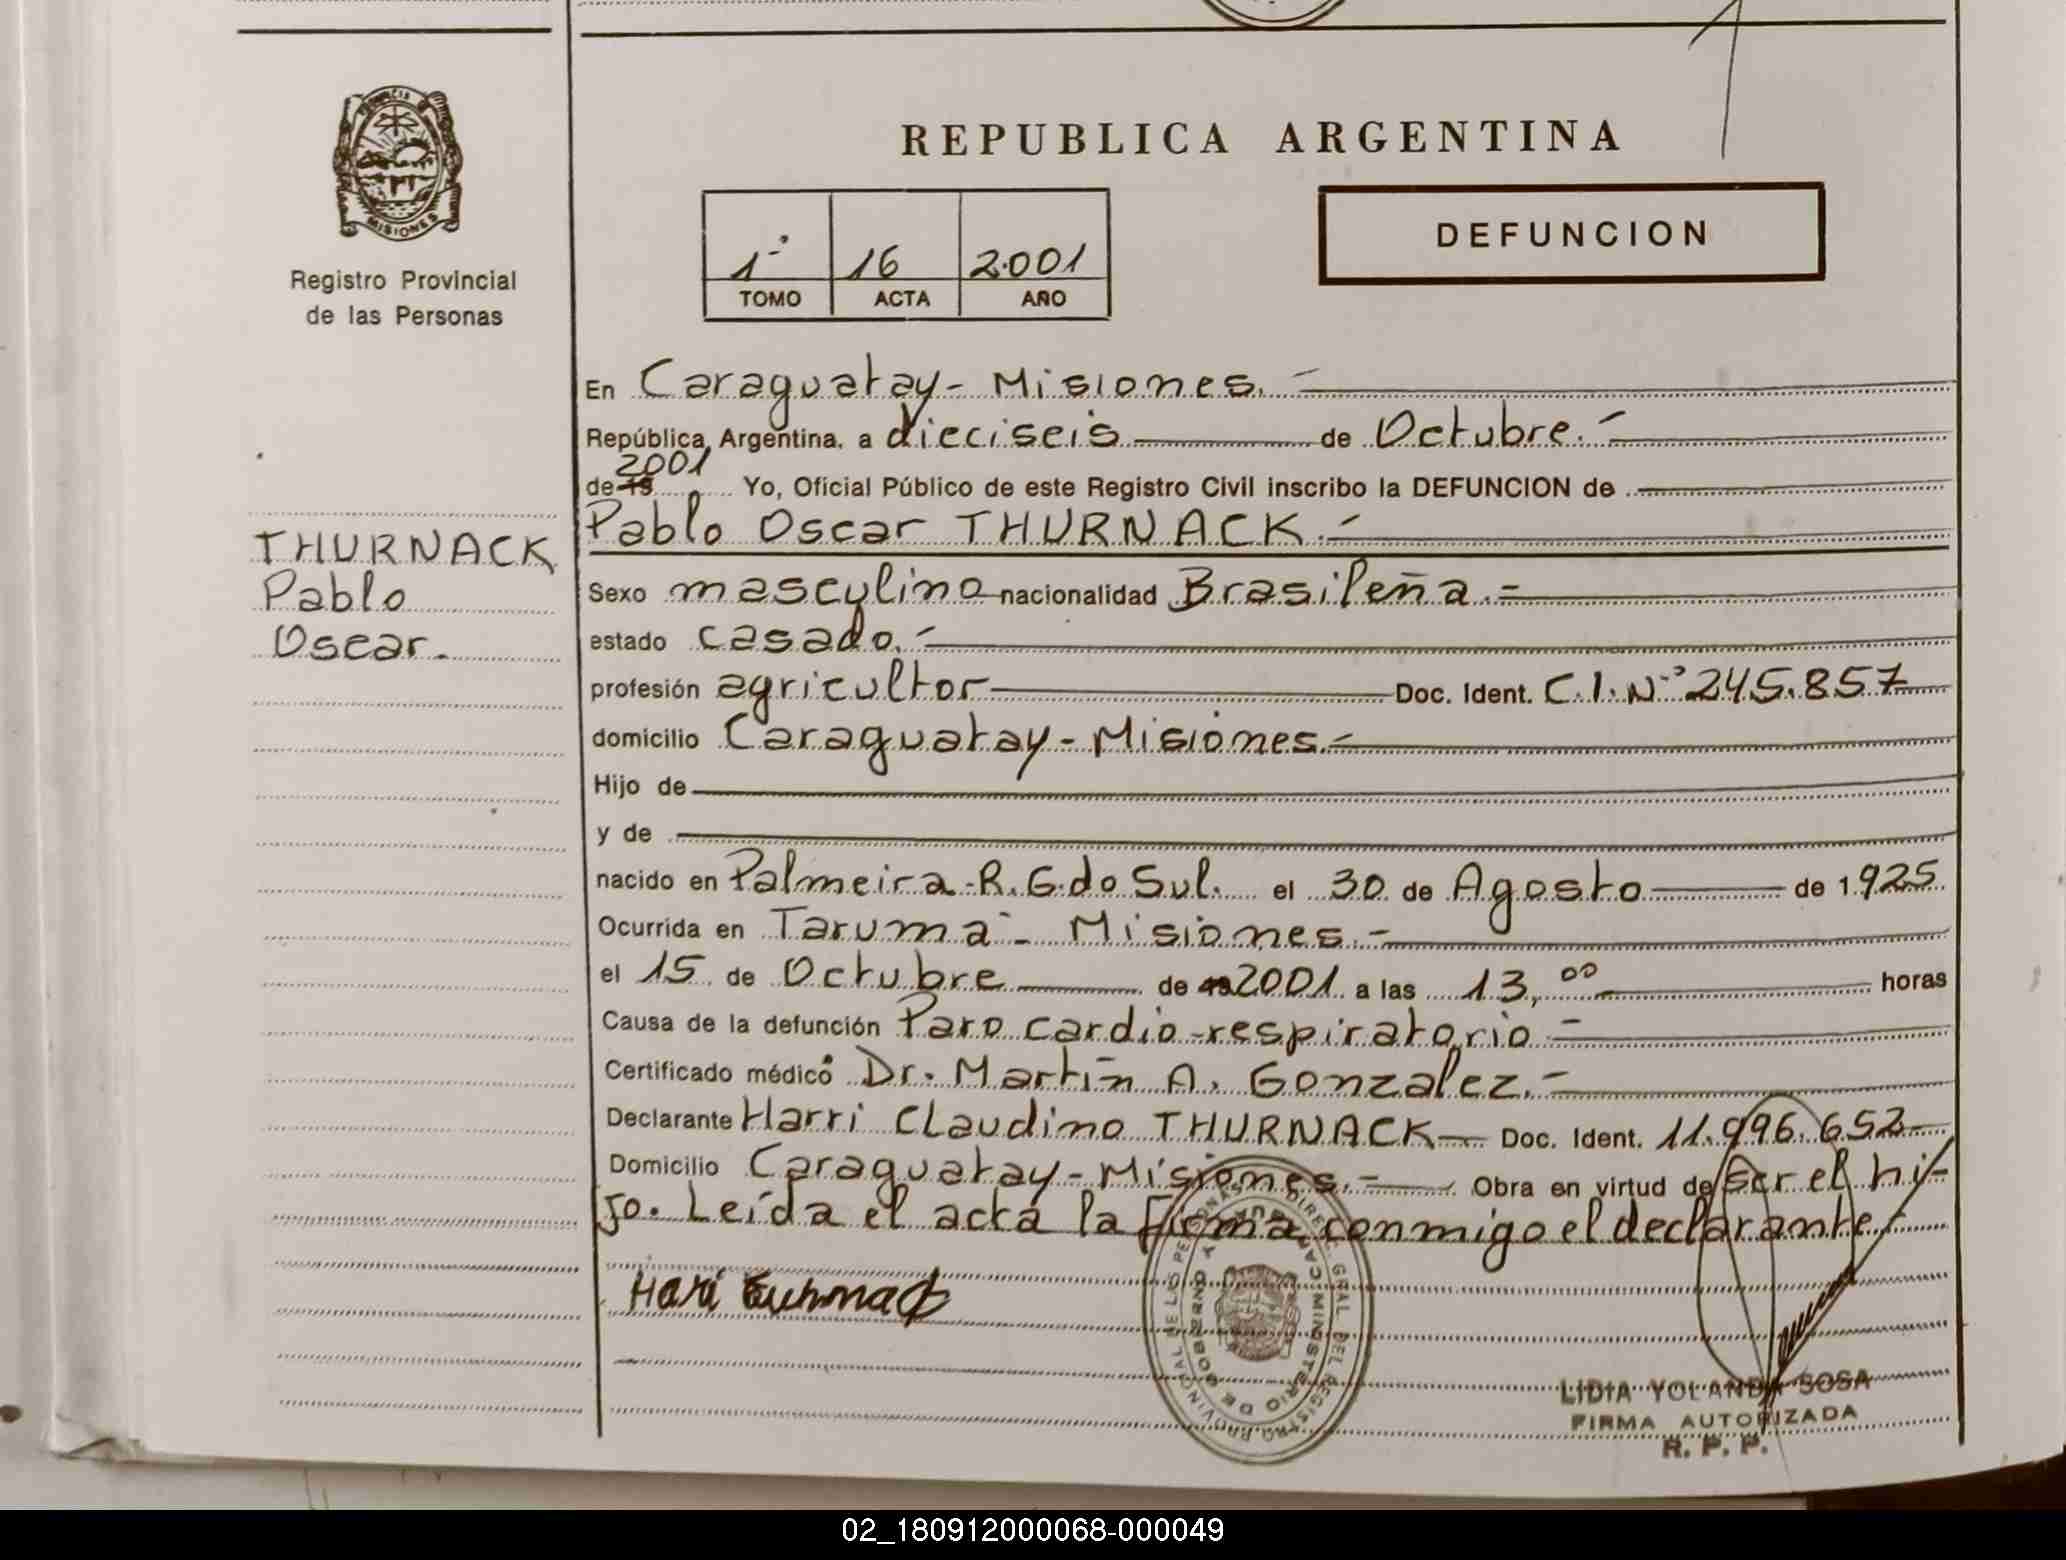 REPUBLICA ARGENTINA
MISIONES
Registro Provincial
de las Personas
1º 16 2.001
TOMO ACTA AÑO
DEFUNCION
En Caraguatay- Misiones.-
República Argentina, a dieciseis de Octubre.-
2001
de 19 Yo, Oficial Público de este Registro Civil inscribo la DEFUNCION de
Pablo Oscar THURNACK.-
THURNACK
Pablo
Oscar.
Sexo masculino nacionalidad Brasileña.-
estado casado.-
profesión agricultor Doc. Ident. C.I. Nº 245.857
domicilio Caraguatay-Misiones.-
Hijo de
y de
nacido en Palmeira-R.G.do Sul. el 30 de Agosto de 1.925
Ocurrida en Taruma- Misiones.-
el 15 de Octubre de 19 2001 a las 13,00 horas
Causa de la defunción Paro cardio-respiratorio-
Certificado médico Dr. Martín A. Gonzalez.-
Declarante Harri Claudino THURNACK- Doc. Ident. 11.996.652-
Domicilio Caraguatay-Misiones.- Obra en virtud de ser el hi-
jo. Leída el acta la firma conmigo el declarante.-
Hari
LIDIA YOLANDA SOSA
FIRMA AUTORIZADA
R. P. P.
02_180912000068-000049